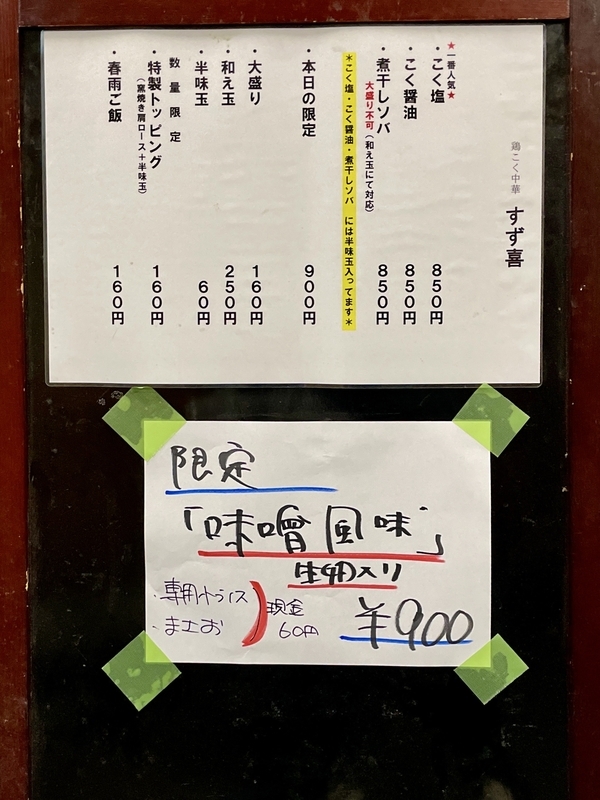 鶏こく中華 すず喜
★一番人気★
・こく塩 850円
・こく醤油 850円
・煮干しソバ 850円
大盛り不可(和え玉にて対応)
*こく塩・こく醤油・煮干しソバ には半味玉入ってます*
・本日の限定 900円
・大盛り 160円
・和え玉 250円
・半味玉 60円
数量限定
・特製トッピング 160円
(窯焼き肩ロース+半味玉)
・春雨ご飯 160円
限定
「味噌風味」
生卵入り
・専用小ライス
現金
60円
¥900